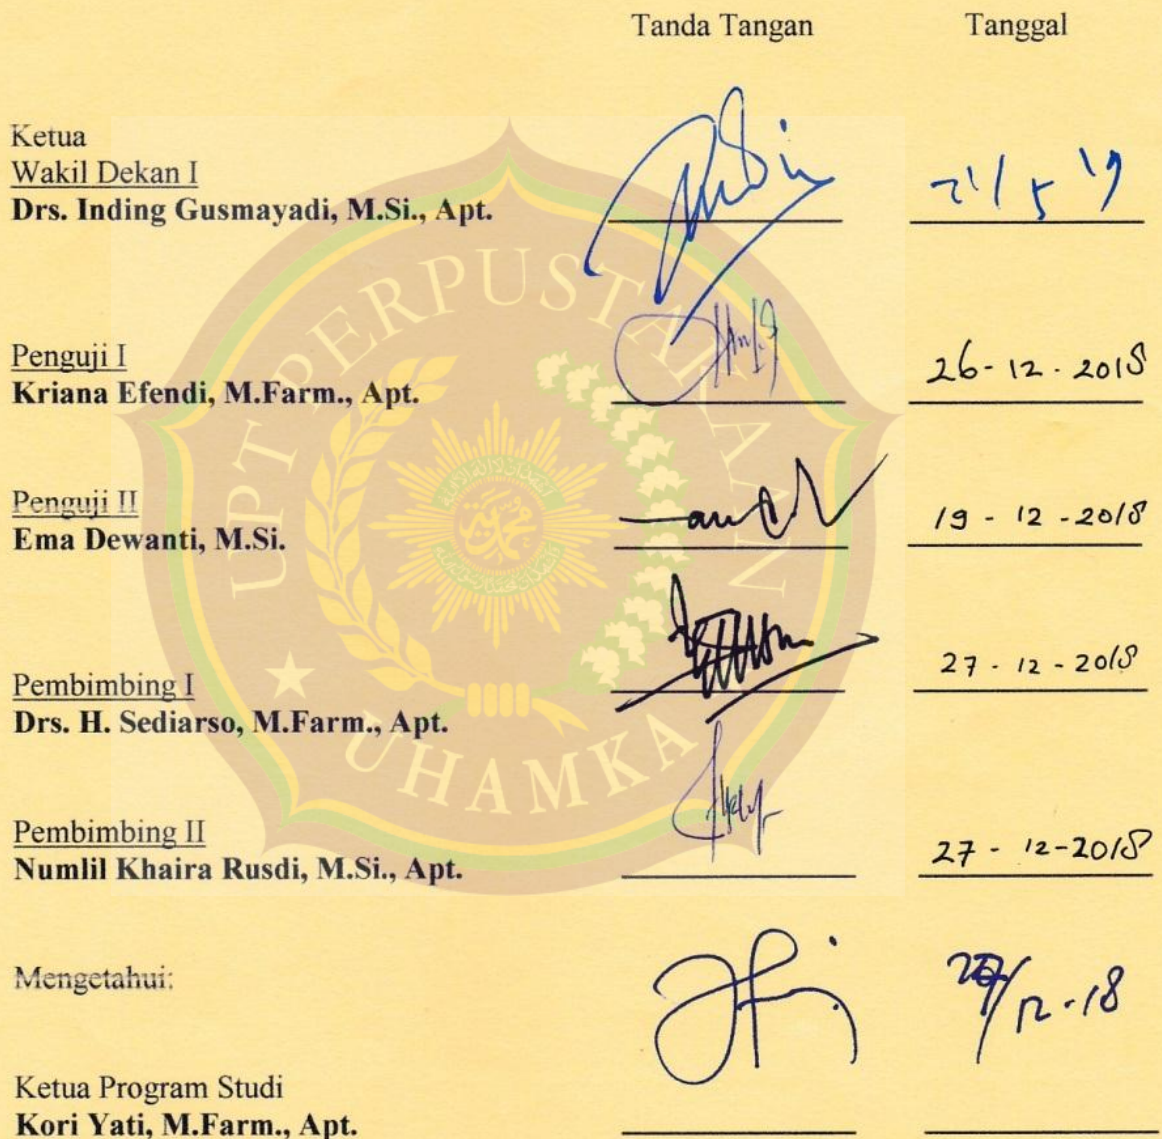 Tanda Tangan Tanggal
Ketua
Wakil Dekan I
Drs. Inding Gusmayadi, M.Si., Apt. 21/5 '19
Penguji I
Kriana Efendi, M.Farm., Apt. 26-12-2018
Penguji II
Ema Dewanti, M.Si. 19-12-2018
Pembimbing I
Drs. H. Sediarso, M.Farm., Apt. 27-12-2018
Pembimbing II
Numlil Khaira Rusdi, M.Si., Apt. 27-12-2018
Mengetahui:
Ketua Program Studi
Kori Yati, M.Farm., Apt.
UPT PERPUSTAKAAN
UHAMKA